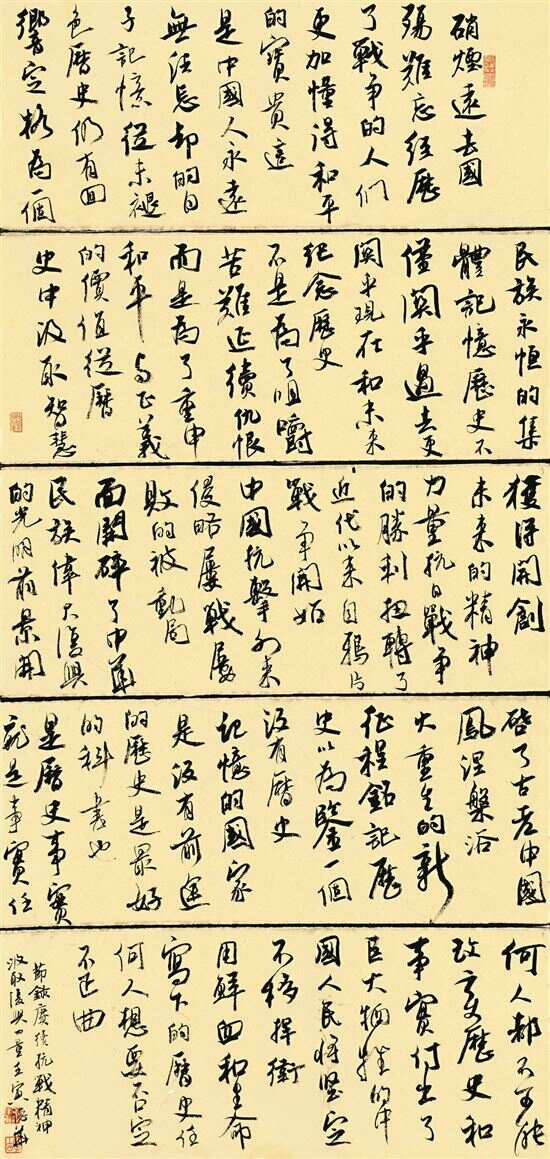 硝煙遠去國
殤難忘經歷
了戰争的人們
更加懂得和平
的寶貴這
是中國人永遠
無法忘却的日
子記憶從未褪
色曆史仍有回
響定格為一個
民族永恒的集
體記憶歷史不
僅關乎過去更
關乎現在和未来
紀念歷史
不是為了咀嚼
苦難延續仇恨
而是為了重申
和平與正義
的價值從曆
史中汲取智慧
獲得開創
未来的精神
力量抗日戰争
的勝利扭轉了
近代以来自鴉片
戰争開始
中國抗擊外来
侵略屢戰屢
敗的被動局
面開辟了中華
民族偉大復興
的光明前景開
啓了古老中國
鳳涅槃浴
火重生的新
征程銘記歷
史以為鑒一個
没有曆史
記憶的國家
是没有前途
的歷史是最好
的科書也
是曆史事實
就是事實任
何人都不可能
改變歷史和
事實付出了
巨大犧牲的中
國人民將堅定
不移捍衛
用鮮血和生命
寫下的曆史任
何人想要否定
不歪曲
節録賡續抗戰精神
汲取復興力量